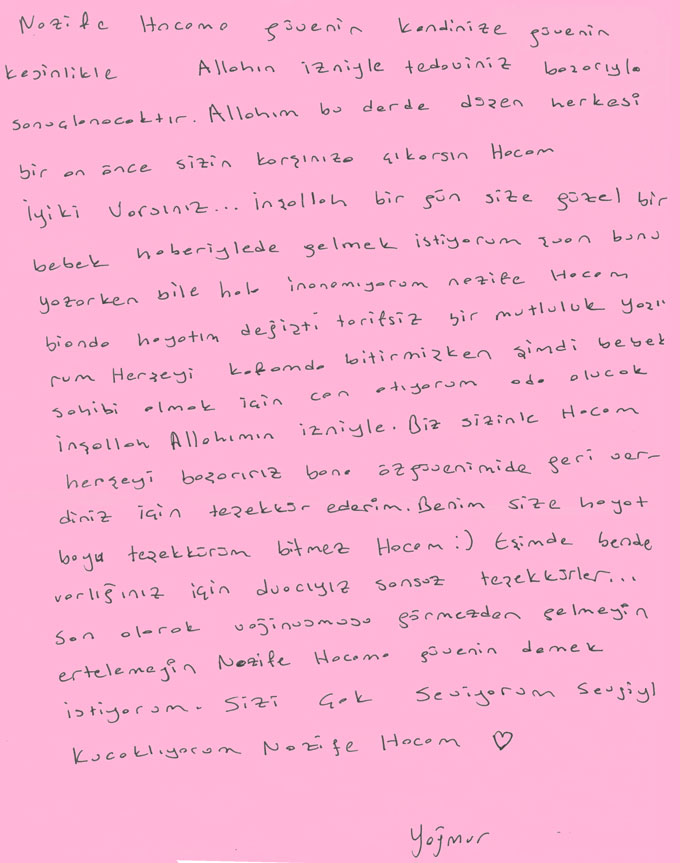 Nazife Hocama güvenin kendinize güvenin
kesinlikle Allahın izniyle tedaviniz başarıyla
sonuçlanacaktır. Allahım bu derde düşen herkesi
bir an önce sizin karşınıza çıkarsın Hocam
İyiki Varsınız... inşallah bir gün size güzel bir
bebek haberiylede gelmek istiyorum şuan bunu
yazarken bile hala inanamıyorum nazife Hocam
bianda hayatım değişti tarifsiz bir mutluluk yaşı
rum Herşeyi kafamda bitirmişken şimdi bebek
sahibi olmak için can atıyorum oda olucak
inşallah Allahımın izniyle. Biz sizinle Hocam
herşeyi başarırız bana özgüvenimide geri ver-
diniz için teşekkür ederim. Benim size hayat
boyu teşekkürüm bitmez Hocam :) Eşimde bende
varlığınız için duacıyız sonsuz teşekkürler...
Son olarak vajinusmusu görmezden gelmeyin
ertelemeyin Nazife Hocama güvenin demek
istiyorum. Sizi Çok Seviyorum Sevgiyl
Kucaklıyorum Nazife Hocam ♡
Yağmur